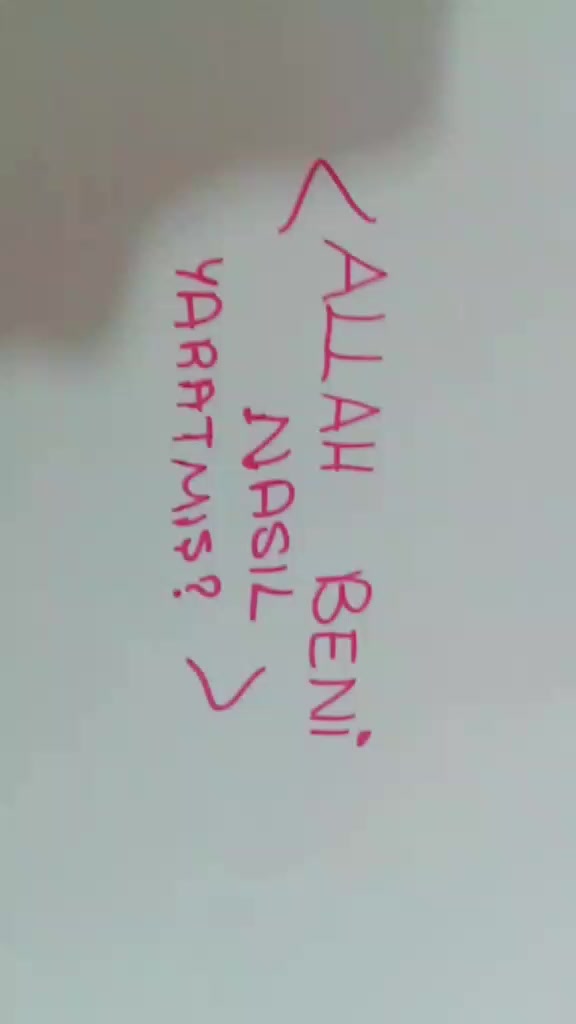 < ALLAH BENİ
NASIL
YARATMIS? >